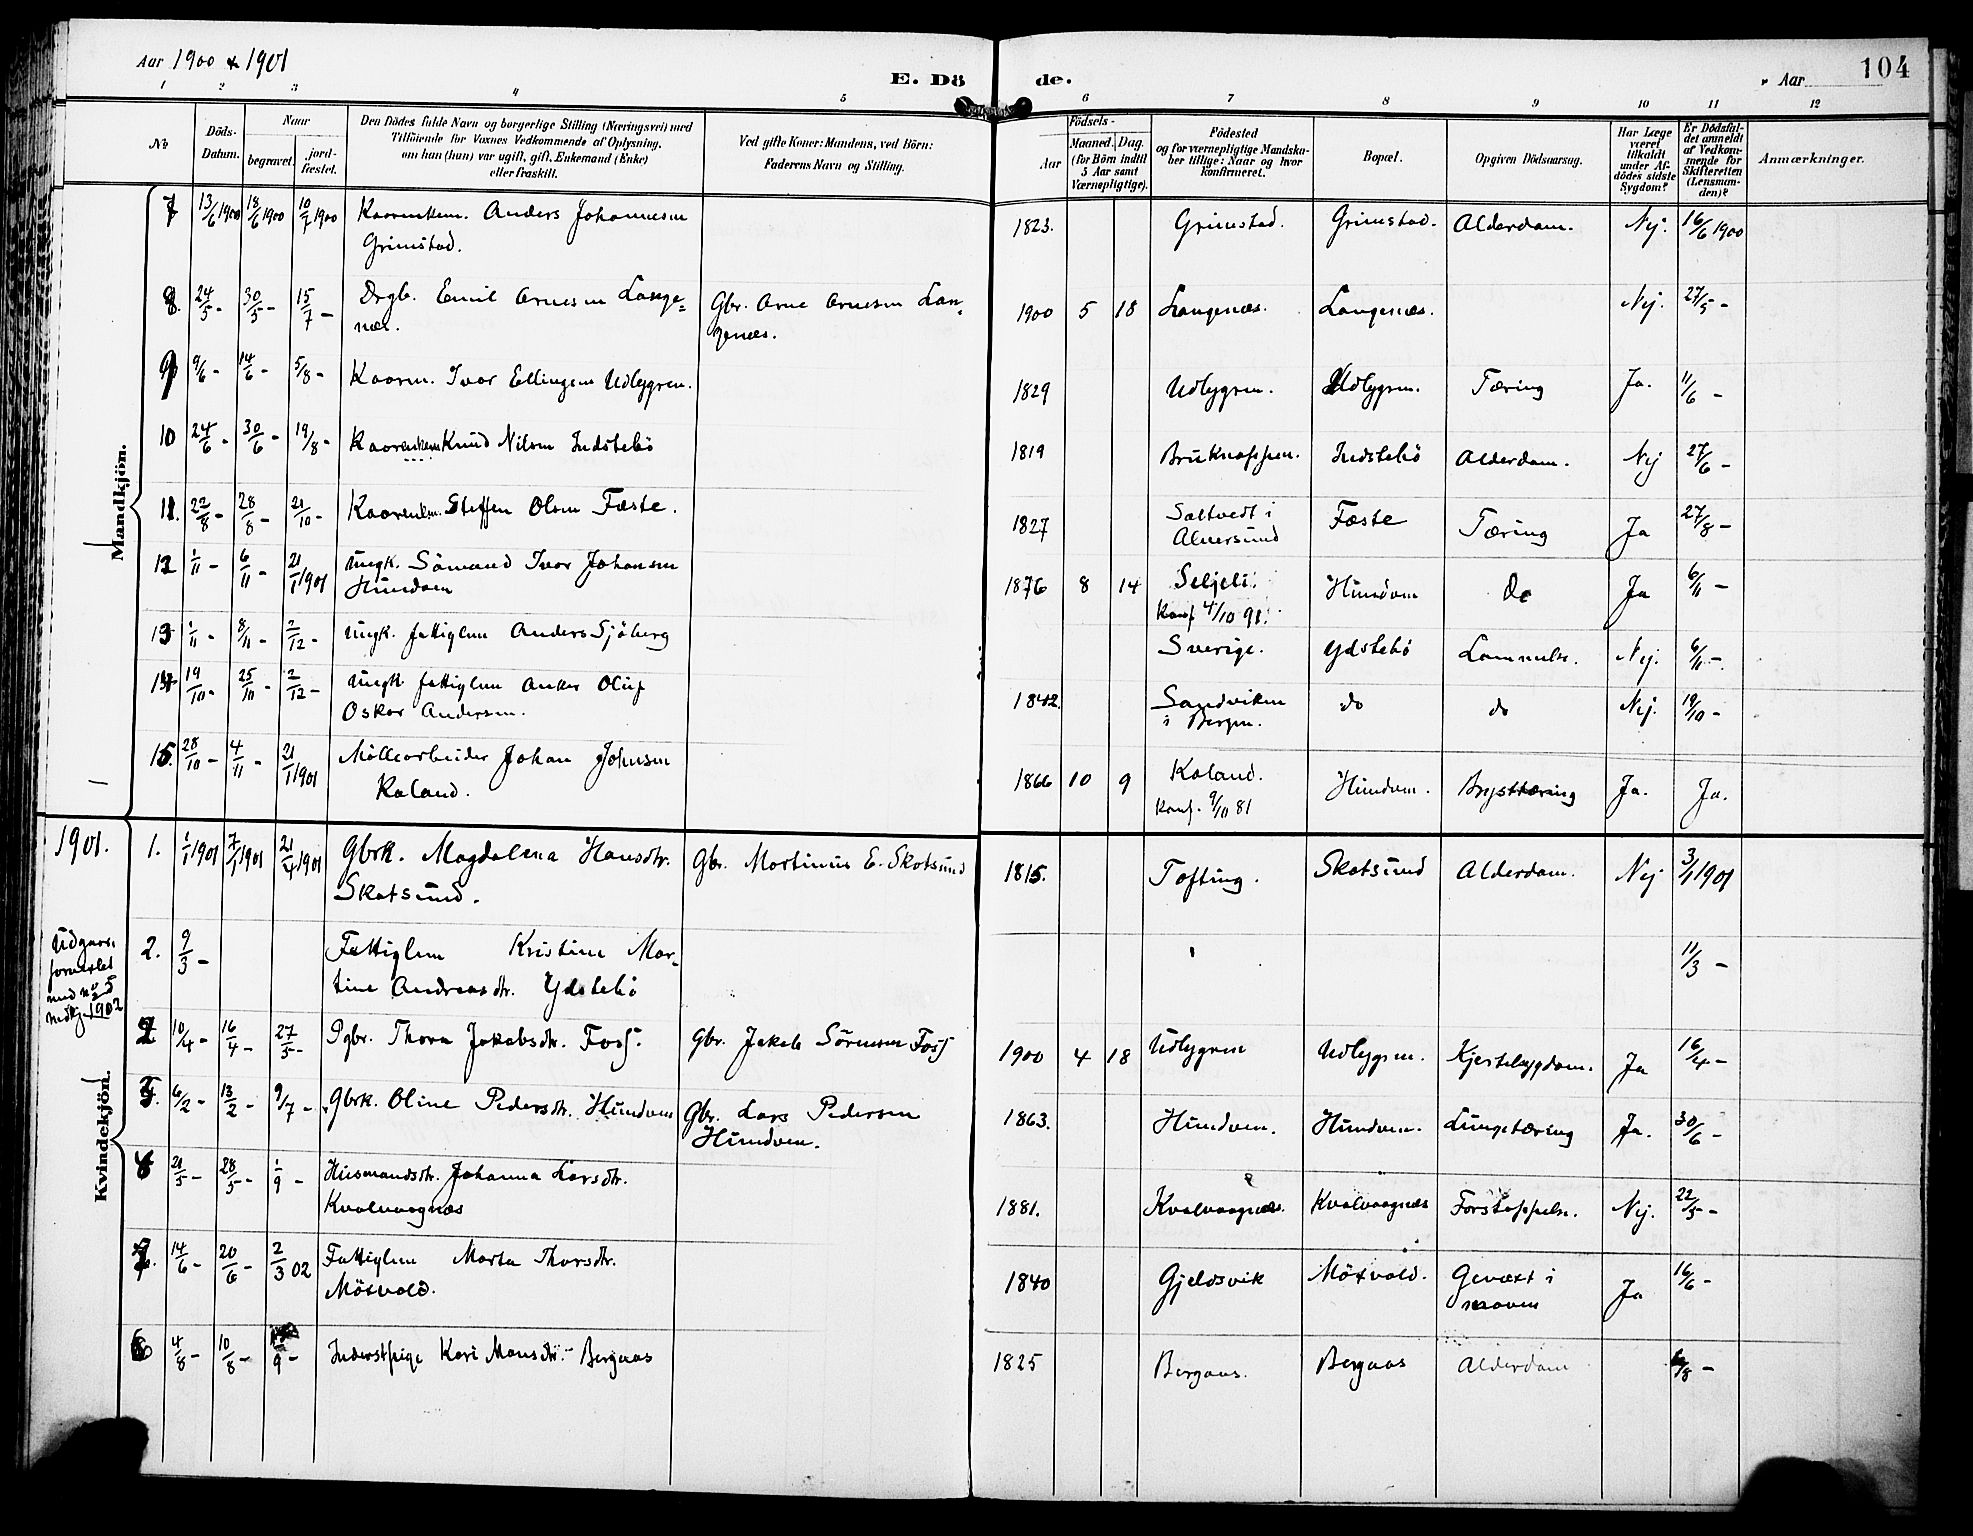 Aar 1900 & 1901
E. Dö de.
Aar
104
1 2 3 4 5 6 7 8 9 10 11 12
No
Döds-Datum.
Naar
begravet.
jord-fæstet.
Den Dödes fulde Navn og borgerlige Stilling (Næringsvei) med
Tilföiende for Voxnes Vedkommende af Oplysning,
om han (hun) var ugift, gift, Enkemand (Enke)
eller fraskilt.
Ved gifte Koner: Mandens, ved Börn:
Faderens Navn og Stilling.
Födsels-
Aar
Maaned. Dag.
(for Börn indtil
5 Aar samt
Værnepligtige).
Födested
og for værnepligtige Mandska-
ber tillige: Naar og hvor
konfirmeret.
Bopæl.
Opgiven Dödsaarsag.
Har Læge
været
tilkaldt
under Af-
dödes sidste
Sygdom?
Er Dödsfal-
det anmeldt
af Vedkom-
mende for
Skifteretten
(Lensman-
den)?
Anmærkninger.
Mandkjön.
7 13/6 1900 18/6 1900 10/7 1900 Kaarenkem. Anders Johannesen
Grimstad.
1823. Grimstad. Grimstad. Alderdom. Nej. 16/6 1900
8. 24/5 - 30/5 - 15/7 - Drgb. Emil Arnesen Lange=
næs.
Gbr. Arne Arnesen Lan-
genæs.
1900 5 18 Langenæs. Langenæs. Nej. 27/5 -
9 9/6 - 14/6 - 5/8 - Kaarm. Ivar Ellingsen Udlyggren.
1829 Udlygren. Udlygren. Tæring Ja. 11/6 -
10 24/6 - 30/6 - 19/8 - Kaarenkem Knud Nilsen Indstebö
1819 Bruknappen. Indstebö Alderdom. Nej 27/6 -
11. 22/8 - 28/8 - 21/10 - Kaarenkm. Steffen Olsen Fæste.
1827 Saltvedt i
Alversund
Fæste Tæring Ja 27/8 -
12 1/11 - 6/11 - 21/1 1901 Ungk. Sömand Ivar Johansen
Hundven
1876 8 14 Seljeli.
Konf 4/10 91.
Hundven do Ja 6/11 -
13 1/11 - 8/11 - 2/12 - Ungk. fattiglem Anders Sjöberg
Sverige. Ydstebö Lammelse. Nej. 6/11 -
14 19/10 - 25/10 - 2/12 - Ungk fattiglem Anker Oluf
Oskar Andersen.
1842. Sandviken
i Bergen.
do do Nej. 19/10 -
15. 28/10 - 4/11 - 21/1 1901 Möllearbeider Johan Johnsen
Kaland.
1866 10 9 Kaland.
Konf. 9/10 81
Hundven. Brysttæring Ja. Ja.
1901.
Kvindekjön.
1. 1/1 1901 7/1 1901 21/4 1901 Gbrk. Magdalena Hansdtr.
Skotsund.
Gbr. Mortinus E. Skotsund
1815. Tofting. Skotsund Alderdom. Nej 3/1 1901
Udgaar.
med no 5
1902
2. 9/3 - Fattiglem Kristine Mar-
tine Andreasdtr. Ydstebö
11/3 -
2 10/4 - 16/4 - 27/5 - Pgbr. Thora Jakobsdtr. Foss.
Gbr. Jakob Sörensen Foss
1900 4 18 Udlygren Udlygren. Kjertelsygdom. Ja 16/4 -
3. 6/2 - 13/2 - 9/7 - Gbrk. Oline Pedersdtr. Hundven
Gbr. Lars Pedersen
Hundven.
1863. Hundven. Hundven. Lungetæring Ja. 30/6 -
4 21/5 - 28/5 - 1/9 - Husmandsdtr. Johanna Larsdtr.
Kvalvaagnæs
1881. Kvalvaagnæs. Kvalvaagnæs Forstoppelse. Nej. 22/5 -
14/6 - 20/6 - 2/3 02 Fattiglem Marta Thorsdtr.
Mötvold.
1840 Gjeldsvik Mötvold. Gevæxt i
maven
Ja 16/6 -
6 4/8 - 10/8 - /9 - Inderstpige Kari Monsdtr. Bergaas
1825 Bergaas. Bergaas Alderdom /8 -